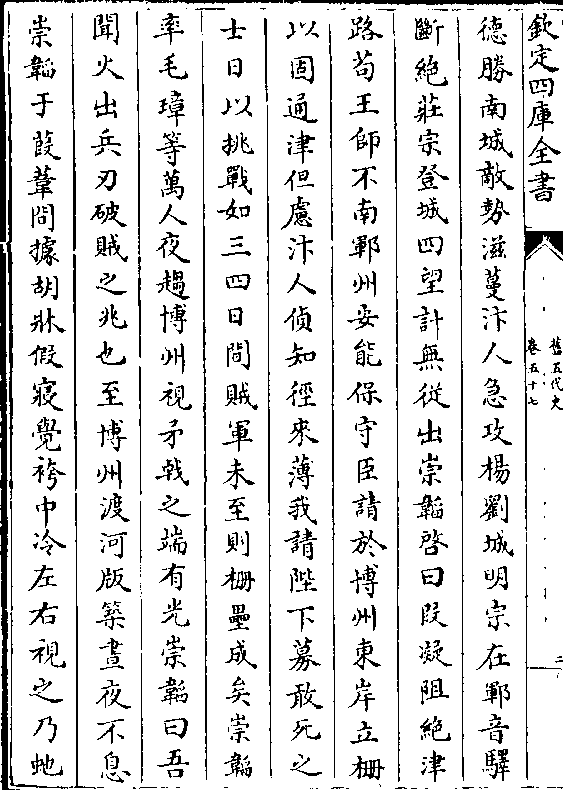 欽定四庫全書
舊五代史
卷五十七
二
德勝南城敵勢滋蔓汴人急攻楊劉城明宗在鄆音驛
斷絕莊宗登城四望計無從出崇韜啓曰段凝阻絕津
路茍王師不南鄆州安能保守臣請於博州東岸立柵
以固通津但慮汴人偵知徑來薄我請陛下募敢死之
士日以挑戰如三四日間賊軍未至則柵壘成矣崇韜
率毛璋等萬人夜趨博州視矛㦸之端有光崇韜曰吾
聞火出兵刃破賊之兆也至博州渡河版築晝夜不息
崇韜于葭葦間據胡牀假寢覺袴中冷左右視之乃虵